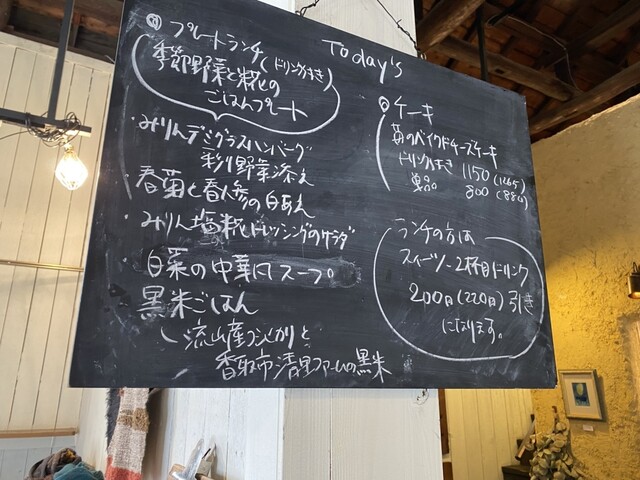 Today's
プレートランチ(ドリンク付き)
季節野菜と糀の
ごはんプレート
・みりんデミグラスハンバーグ
彩り野菜添え
・春菊と春人参の白あえ
・みりん塩糀ドレッシングのサラダ
・白菜の中華風スープ
・黒米ごはん
流山産コシヒカリと
香取市清里ファームの黒米
ケーキ
苺のベイクドチーズケーキ
ドリンク付き 1150(1265)
単品 800(880)
ランチの方は
スイーツ・2杯目ドリンク
200円(220円)引き
になります。